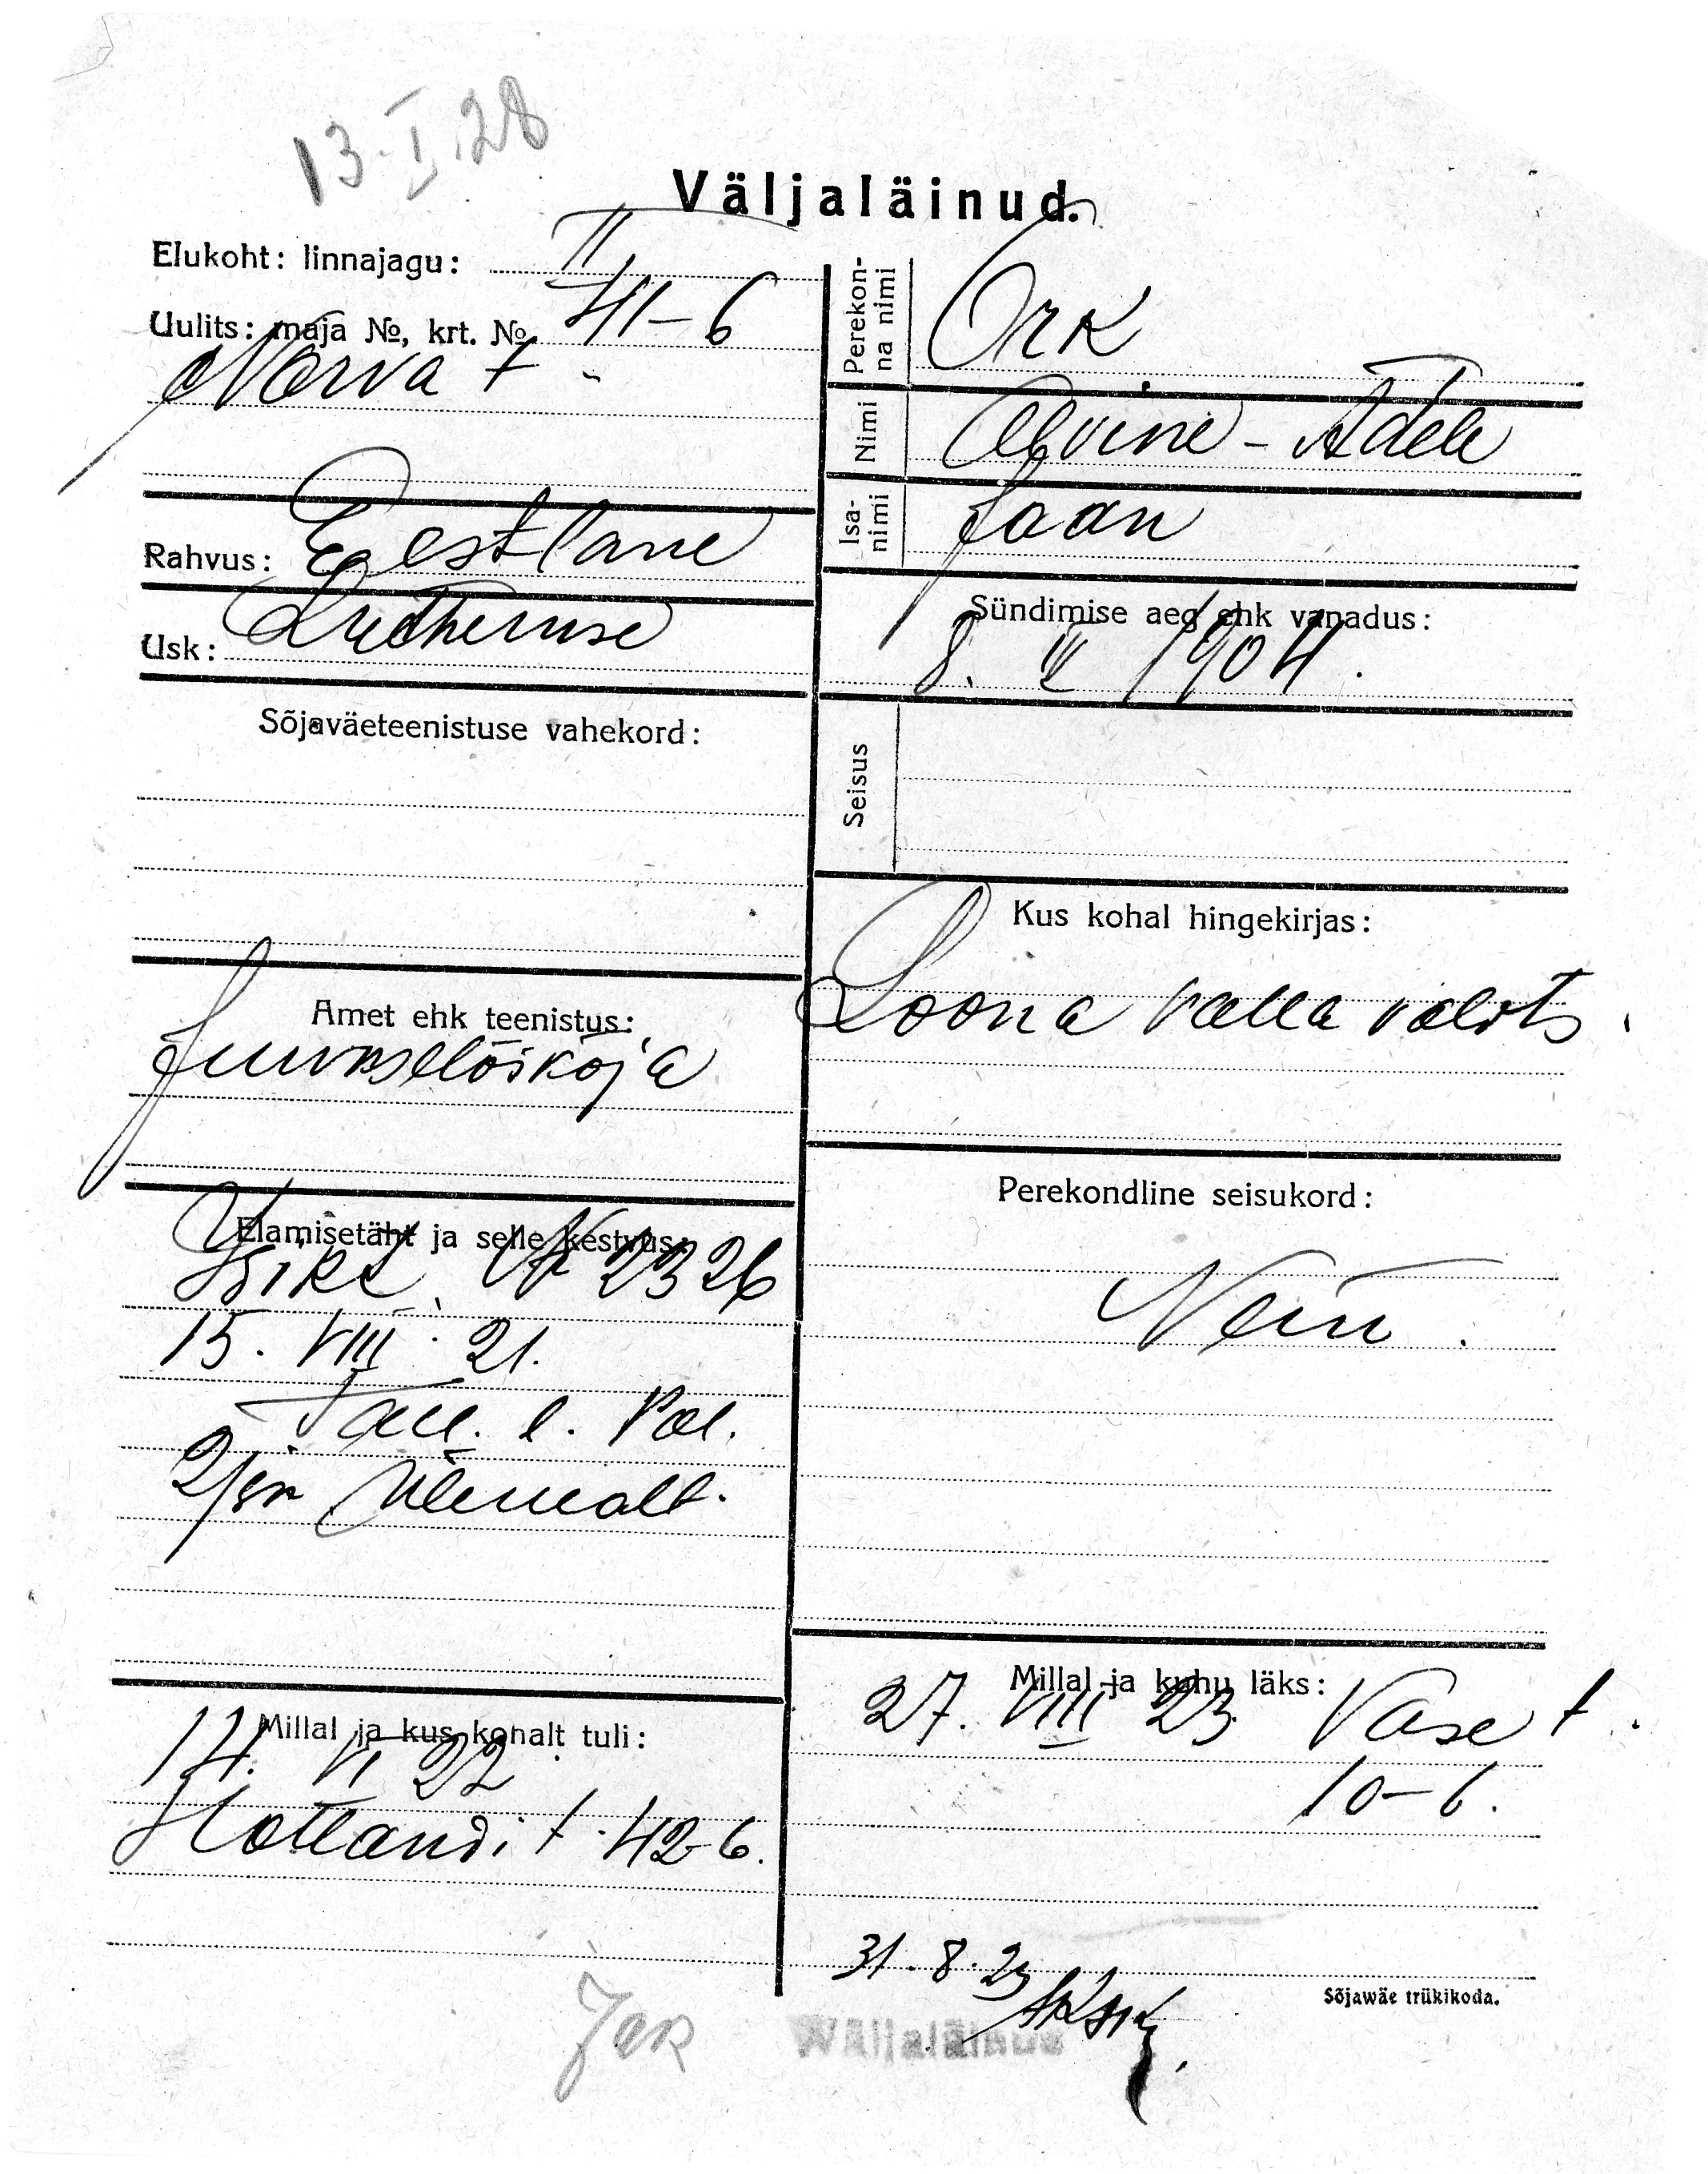 13.I.28
Väljaläinud.
Elukoht: linnajagu: II
Uulits: maja №, krt. № 41-6
Narva t -
Rahvus: Eestlane
Usk: Lutheruse
Sõjaväeteenistuse vahekord:
Amet ehk teenistus:
Elamisetäht ja selle kestvus:
Isikt. № 2326
15. VIII. 21.
Tall. l. Pol.
2/jsk Ülemalt.
Millal ja kus kohalt tuli:
14. VI 22
Hollandi t. 42-6.
Perekonna nimi Ork
Nimi Alvine - Adele
Isanimi Jaan
Sündimise aeg ehk vanadus:
1904.
Seisus
Kus kohal hingekirjas:
Loona valla valits.
Perekondline seisukord:
Neiu.
Millal ja kuhu läks:
27. VIII 23 Vase t.
10-6.
31.8.23
Sõjawäe trükikoda.
Jak
Wäljaläinud